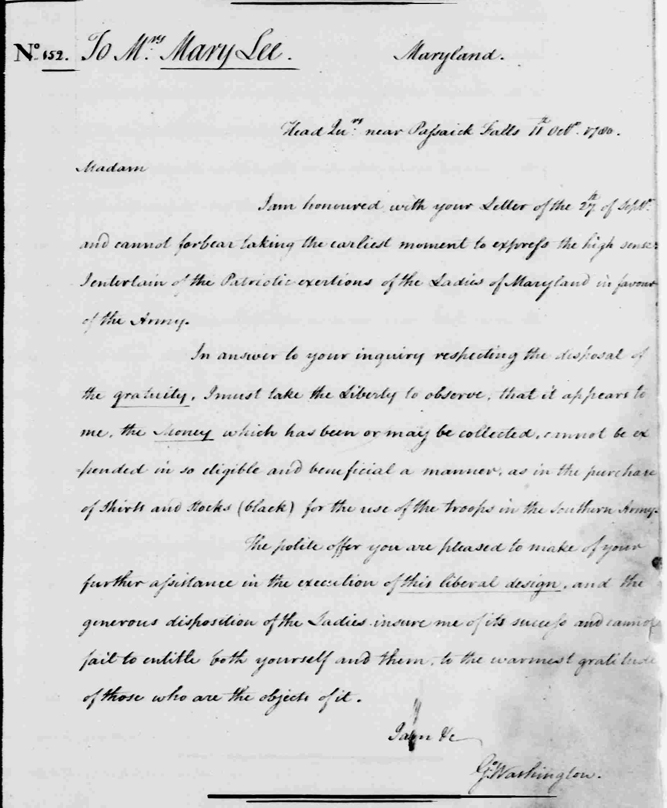 No. 152. To Mrs. Mary Lee. Maryland.
Head Qurs. near Passaick Falls 11th Octr. 1780.
Madam
I am honoured with your Letter of the 27th of Septr.
and cannot forbear taking the earliest moment to express the high sense
I entertain of the Patriotic exertions of the Ladies of Maryland in favour
of the Army.
In answer to your inquiry respecting the disposal of
the gratuity, I must take the Liberty to observe, that it appears to
me, the Money which has been or may be collected, cannot be ex
pended in so eligible and beneficial a manner, as in the purchase
of Shirts and Stocks (black) for the use of the troops in the Southern Army.
The polite offer you are pleased to make of your
further assistance in the execution of this liberal design, and the
generous disposition of the Ladies insure me of its success and cannot
fail to entitle both yourself and them, to the warmest gratitude
of those who are the objects of it.
I am &c
Go. Washington.